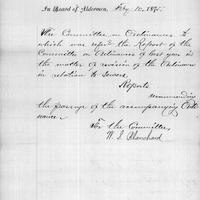 In Board of Aldermen, Feby. 10, 1875.
The Committee on Ordinances to
which was refd the Report of the
Committee on Ordinances of last year in
the matter of revision of the Ordinance
in relation to Sewers.
Reports
recommending
the passage of the accompanying Ordi-
nance.
For the Committee,
W. S. Blanchard